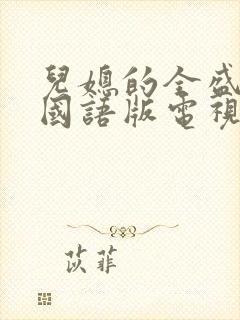 兒媳的全盛
國語版電視
苡菲